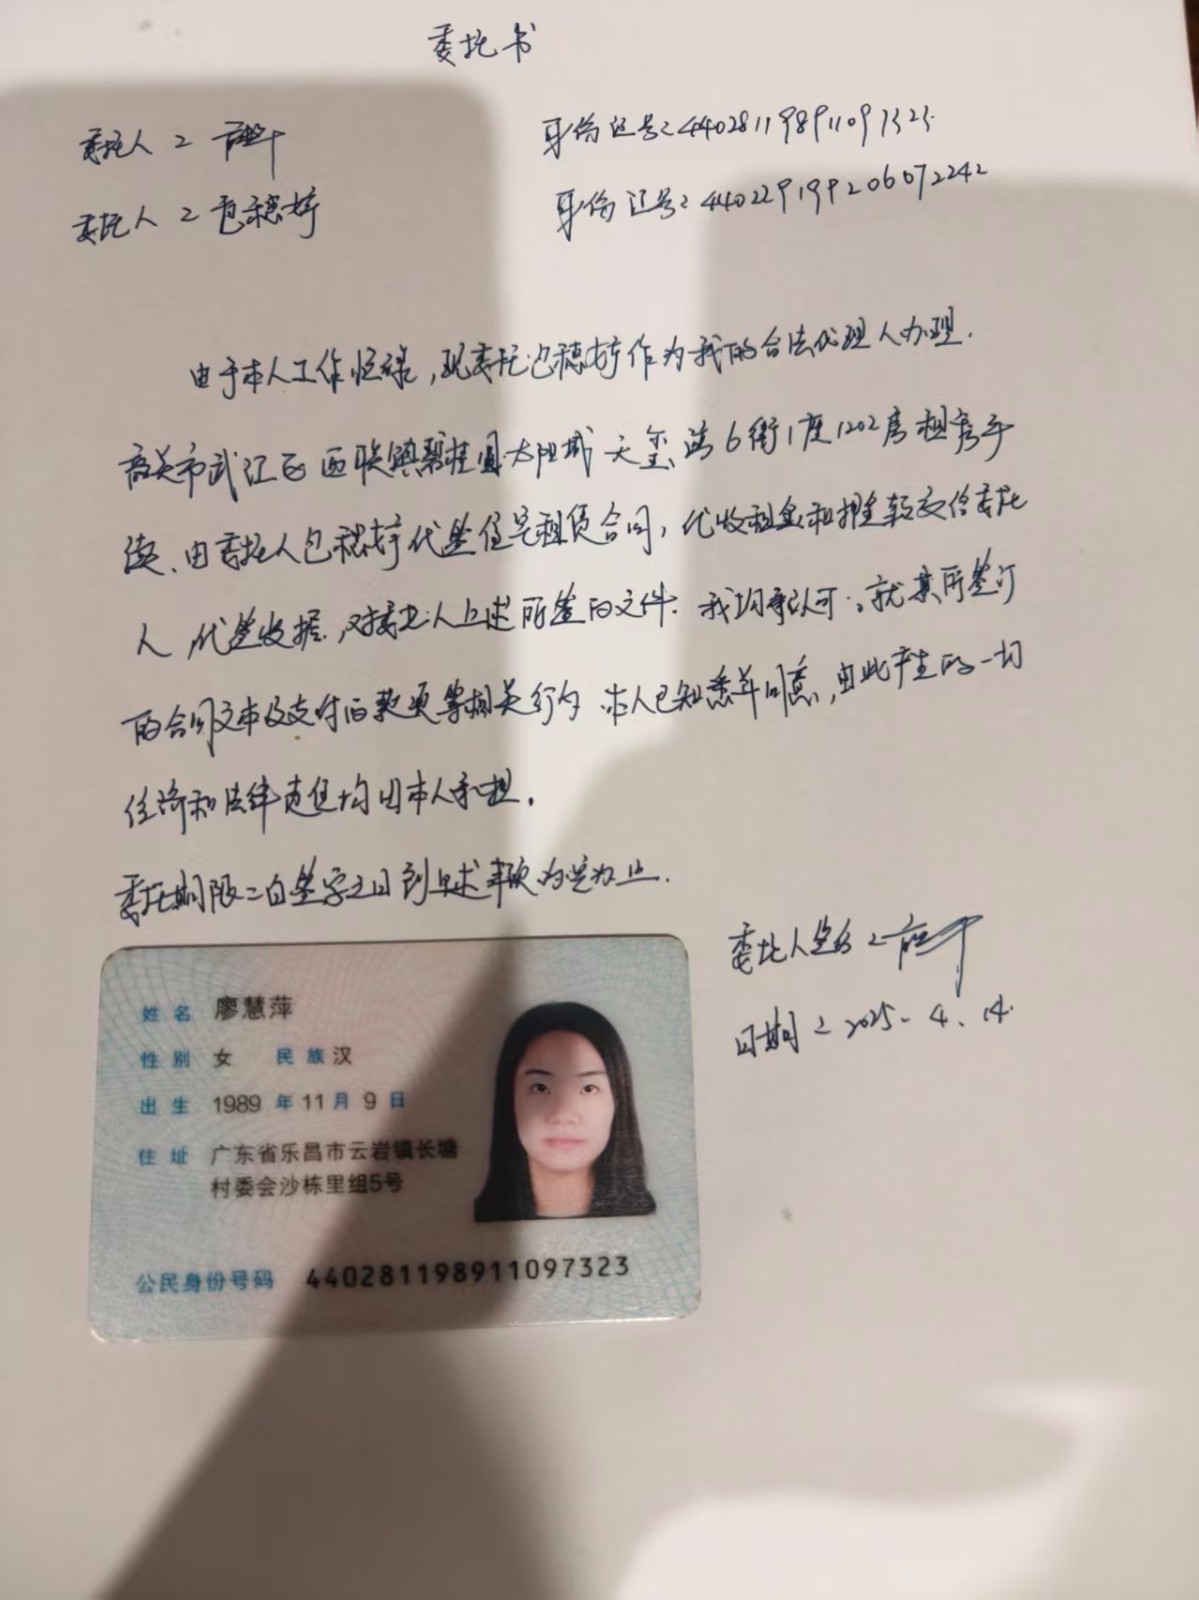 委托书
委托人: 身份证号:440281198911097323.
委托人:包穗婷 身份证号:440229199206072242
由于本人工作忙碌,现委托包穗婷作为我的合法代理人办理.
韶关市武江区西联镇碧桂园太阳城天玺湾6街1座1202房租房手
续.由委托人包穗婷代签住宅租赁合同,代收租金和押金转交给委托
人,代签收据,对委托人上述所签的文件.我均承认可.就其所签订
的合同文本及支付的款项等相关行为本人已知悉并同意,由此产生的一切
经济和法律责任均由本人承担.
委托期限:自签字之日到上述事项为完为止.
委托人签名:
日期:2025.4.14.
姓名 廖慧萍
性别 女 民族 汉
出生 1989年11月9日
住址 广东省乐昌市云岩镇长塘
村委会沙栋里组5号
公民身份号码 440281198911097323